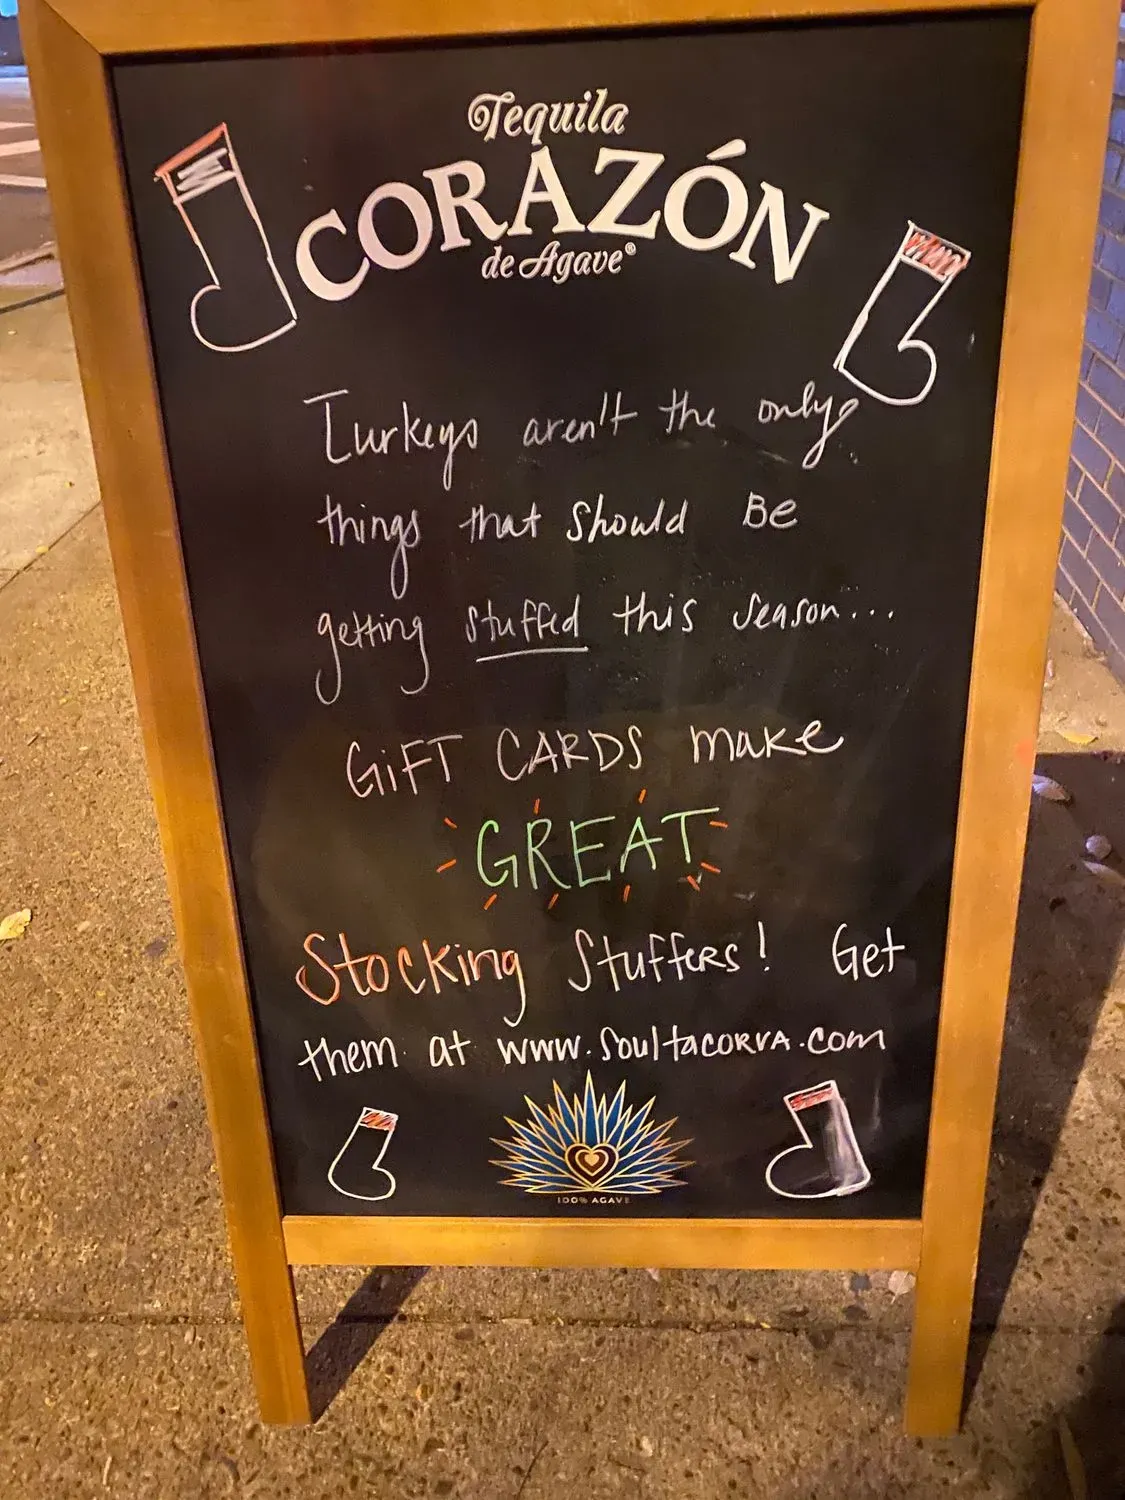 Tequila
CORAZÓN
de Agave®
Turkeys aren't the only
things that should Be
getting stuffed this season...
GiFT CARDS make
GREAT
Stocking Stuffers! Get
them at www.soultacorva.com
100% AGAVE